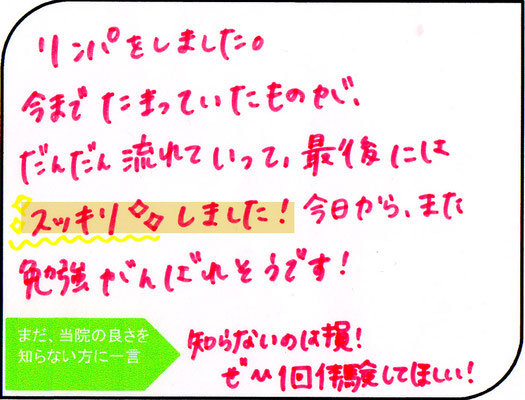 リンパをしました。
今までたまっていたものが、
だんだん流れていって、最後には
スッキリしました!今日から、また
勉強がんばれそうです!
まだ、当院の良さを
知らない方に一言
知らないのは損!
ぜ〜1回体験してほしい!